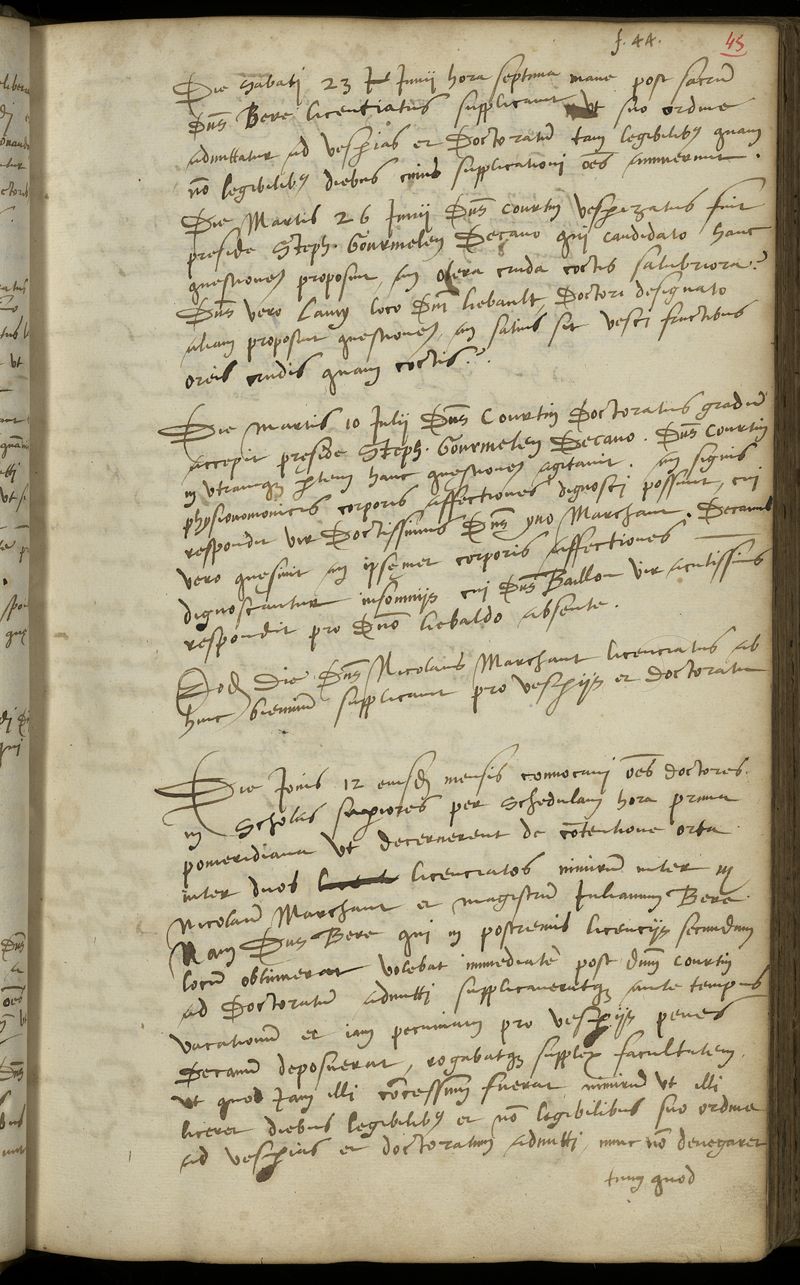 f. 44.
45
Die Sabati 23 Junii hora septima mane post sacrũ
Dns Bere licentiatus supplicauit ut suo ordine
admittatur ad vesperias et Doctoratũ tam legibilibꝫ quam
nõ legibilibꝫ diebus cuius supplicationi oẽs annuerunt.
Die Martis 26 Junii Dns Courtin vesperizatus fuit
preside Steph. Gourmelen Decano qui candidato hanc
questionem proposuit, an olera cruda coctis salubriora?
Dns vero Lamy loco Dni Liebault, Doctori designato
aliam proposuit questionem, an satius sit vesci fructibus
oreis crudis quam coctis?
Die Martis 10 Julij Dns Courtin Doctoratus gradũ
accepit preside Steph. Gourmelen Decano. Dns Courtin
in utramqꝫ ptem hanc questionem agitauit. an signis
physionomonicis corporis affectiones dignosci possint, cui
respondit vir Doctissimus Dns yuo Marchant. Decanus
vero quesiuit an ipsęmet corporis affectiones
dignoscantur insomnijs cui Dns Baillou vir acutissimus
respondit pro Dno Liebaldo absente.
Eodẽ die Dns Nicolaus Marchant licenciatus ab
hinc biennium supplicauit pro vesperijs et doctoratu
Die Jouis 12 eiusdẽ mensis conuocaui oẽs doctores
in scholas supiores per schedulam hora prima
pomeridiana ut decernerent de cõtentione orta
inter duos licenciatos nimirũ inter m
Nicolaũ Marchant et magistrũ Julianum Bere
Nam Dns Bere qui in postremis licencijs secundum
locũ obtinuerat volebat immediate post dnm Courtin
ad Doctoratũ admitti supplicaueratqꝫ ante tempus
vacationum et iam pecuniam pro vesperijs penes
Decanũ deposuerat, rogabatqꝫ supplex facultatem
ut quod Jam illi cõcessum fuerat nimirũ ut illi
liceret diebus legibilibꝫ et nõ legibilibus suo ordine
ad vesperias et doctoratum admitti, nunc nõ denegaret
tum quod